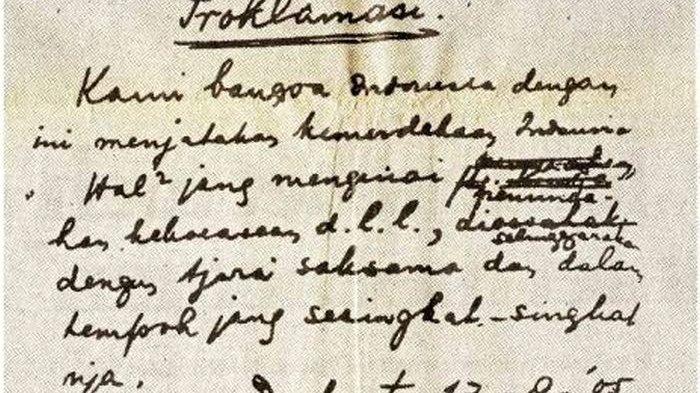 Proklamasi.
Kami bangsa Indonesia dengan
ini menjatakan kemerdekaan Indonesia
Hal² jang mengenai
pemindahan
kekoeasaan d.l.l., diselenggarakan
dengan tjara saksama dan dalam
tempoh jang sesingkat-singkat
nja.